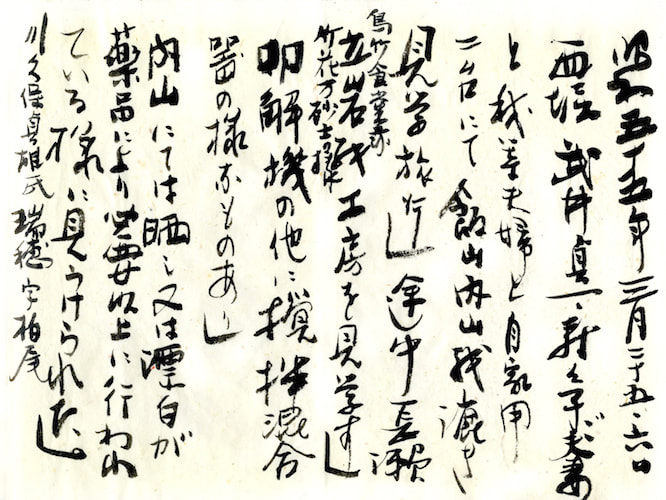 昭和五十五年三月二十五・六日
武井真一・子ご夫妻
と我等夫婦と自家用
二台にて飯山内山紙漉き
見学旅行し途中長瀬
鳥竹食堂
竹花万砂士様
立岩紙工房を見学す
叩解機の他に撹拌混合
器の様なものあり
内山にては晒し又は漂白が
薬品により必要以上に行われ
ている様に見うけられた。
川久保貞雄氏 瑞穂字柏尾